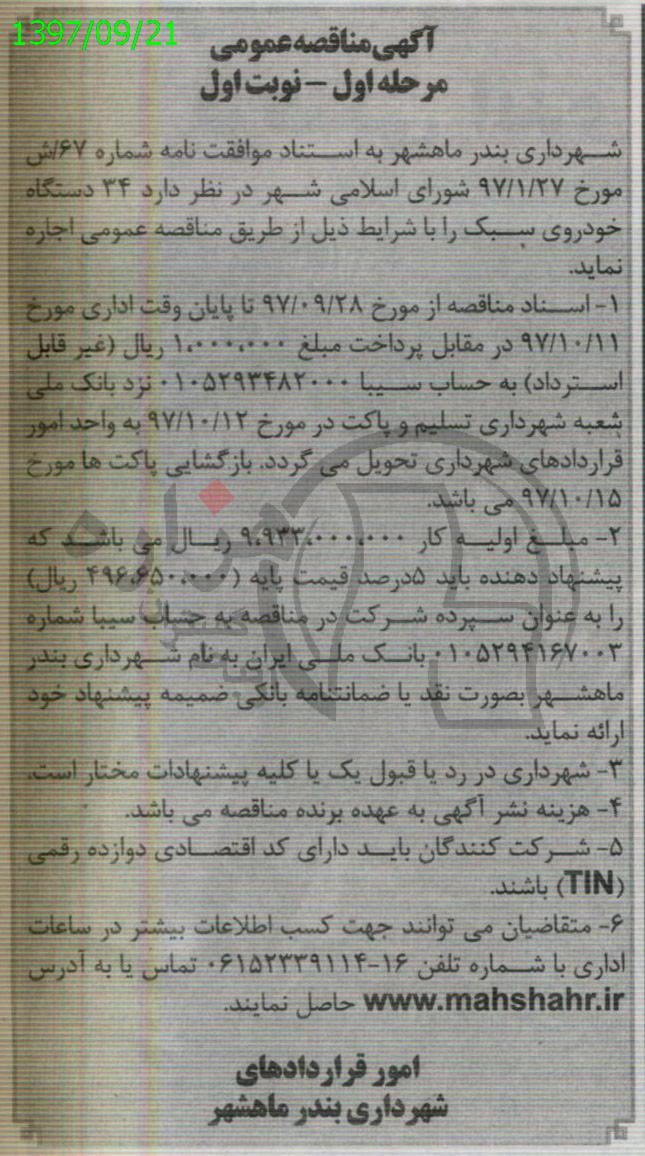 1397/09/21
آگهی مناقصه عمومی
مرحله اول – نوبت اول
شهرداری بندر ماهشهر به استناد موافقت نامه شماره ۶۷/ش
مورخ ۹۷/۱/۲۷ شورای اسلامی شهر در نظر دارد ۳۴ دستگاه
خودروی سبک را با شرایط ذیل از طریق مناقصه عمومی اجاره
نماید.
۱- اسناد مناقصه از مورخ ۹۷/۰۹/۲۸ تا پایان وقت اداری مورخ
۹۷/۱۰/۱۱ در مقابل پرداخت مبلغ ۱،۰۰۰،۰۰۰ ریال (غیر قابل
استرداد) به حساب سیبا ۰۱۰۵۲۹۳۴۸۲۰۰۰ نزد بانک ملی
شعبه شهرداری تسلیم و پاکت در مورخ ۹۷/۱۰/۱۲ به واحد امور
قراردادهای شهرداری تحویل می گردد. بازگشایی پاکت ها مورخ
۹۷/۱۰/۱۵ می باشد.
۲- مبلغ اولیه کار ۹،۹۳۳،۰۰۰،۰۰۰ ریال می باشد که
پیشنهاد دهنده باید ۵درصد قیمت پایه (۴۹۶،۶۵۰،۰۰۰ ریال)
را به عنوان سپرده شرکت در مناقصه به حساب سیبا شماره
۰۱۰۵۲۹۴۱۶۷۰۰۳ بانک ملی ایران به نام شهرداری بندر
ماهشهر بصورت نقد یا ضمانتنامه بانکی ضمیمه پیشنهاد خود
ارائه نماید.
۳- شهرداری در رد یا قبول یک یا کلیه پیشنهادات مختار است.
۴- هزینه نشر آگهی به عهده برنده مناقصه می باشد.
۵- شرکت کنندگان باید دارای کد اقتصادی دوازده رقمی
(TIN) باشند.
۶- متقاضیان می توانند جهت کسب اطلاعات بیشتر در ساعات
اداری با شماره تلفن ۱۶-۰۶۱۵۲۳۳۹۱۱۴ تماس یا به آدرس
www.mahshahr.ir حاصل نمایند.
امور قراردادهای
شهرداری بندر ماهشهر